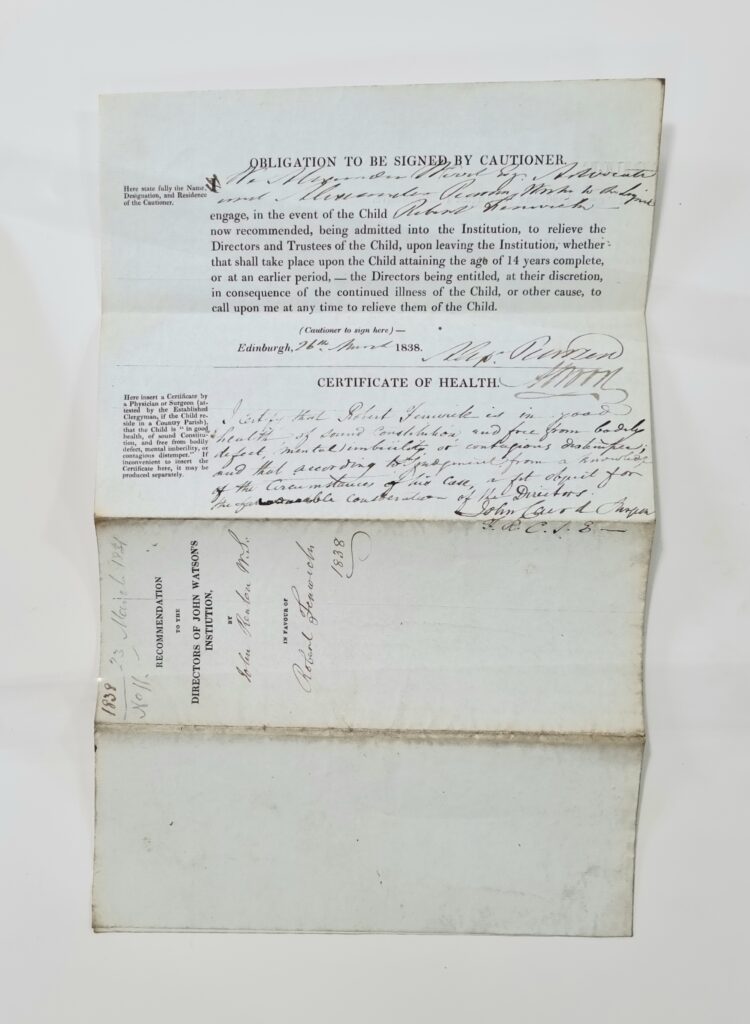 OBLIGATION TO BE SIGNED BY CAUTIONER.
Here state fully the Name,
Designation, and Residence
of the Cautioner.
We Alexander Wood Esq. Advocate
and Alexander Writer to the Signet
engage, in the event of the Child Robert Fenwick
now recommended, being admitted into the Institution, to relieve the
Directors and Trustees of the Child, upon leaving the Institution, whether
that shall take place upon the Child attaining the age of 14 years complete,
or at an earlier period, — the Directors being entitled, at their discretion,
in consequence of the continued illness of the Child, or other cause, to
call upon me at any time to relieve them of the Child.
(Cautioner to sign here) —
Edinburgh, 26th March 1838.
A Wood
CERTIFICATE OF HEALTH.
Here insert a Certificate by
a Physician or Surgeon (at-
tested by the Established
Clergyman, if the Child re-
side in a Country Parish),
that the Child is "in good
health, of sound Constitu-
tion, and free from bodily
defect, mental imbecility, or
contagious distemper." If
inconvenient to insert the
Certificate here, it may be
produced separately.
I certify that Robert Fenwick is in good
health, of sound constitution, and free from bodily
defect, mental imbecility, or contagious distemper;
and that according to my judgement, from a knowledge
of the circumstances of his case, a fit object for
the consideration of the Directors.
John Caird Surgeon
F. R. C. S. E —
1838
23 March 1838
No 11.
RECOMMENDATION
TO THE
DIRECTORS OF JOHN WATSON'S
INSTIUTION,
BY
John Renton W.S.
IN FAVOUR OF
Robert Fenwick
1838